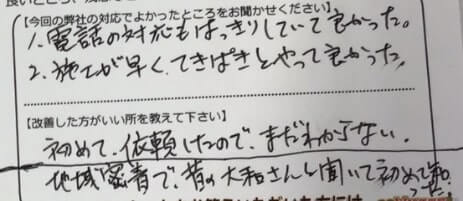 【今回の弊社の対応でよかったところをお聞かせください】
1. 電話の対応もはっきりしていて良かった。
2. 施工が早く、てきぱきとやって良かった。
【改善した方がいい所を教えて下さい】
初めて、依頼したので、まだわからない。
地域密着で、昔の大和さんと聞いて初めて知った。